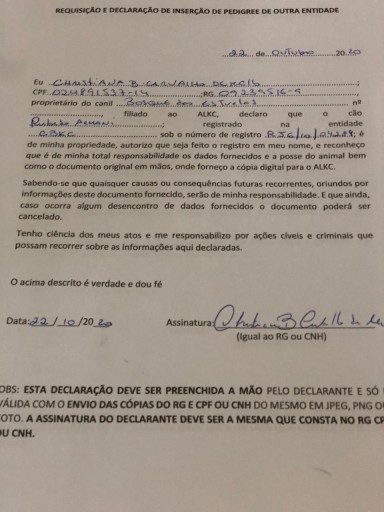 REQUISIÇÃO E DECLARAÇÃO DE INSERÇÃO DE PEDIGREE DE OUTRA ENTIDADE
22 de outubro 2020
Eu CHRISTIANA B. CARVALHO
CPF ;RG
proprietário do canil Bosque das Estrelas nº
, filiado ao ALKC, declaro que o cão
Armani ; registrado na entidade
CBKC sob o número de registro ; é
de minha propriedade, autorizo que seja feito o registro em meu nome, e reconheço
que é de minha total responsabilidade os dados fornecidos e a posse do animal bem
como o documento original em mãos, onde forneço a cópia digital para o ALKC.
Sabendo-se que quaisquer causas ou consequências futuras recorrentes, oriundos por
informações deste documento fornecido, serão de minha responsabilidade. E que ainda,
caso ocorra algum desencontro de dados fornecidos o documento poderá ser
cancelado.
Tenho ciência dos meus atos e me responsabilizo por ações cíveis e criminais que
possam recorrer sobre as informações aqui declaradas.
O acima descrito é verdade e dou fé
Data: 22/10/2020 Assinatura:
(Igual ao RG ou CNH)
OBS: ESTA DECLARAÇÃO DEVE SER PREENCHIDA A MÃO PELO DECLARANTE E SÓ
VÁLIDA COM O ENVIO DAS CÓPIAS DO RG E CPF OU CNH DO MESMO EM JPEG, PNG OU
FOTO. A ASSINATURA DO DECLARANTE DEVE SER A MESMA QUE CONSTA NO RG CP
OU CNH.